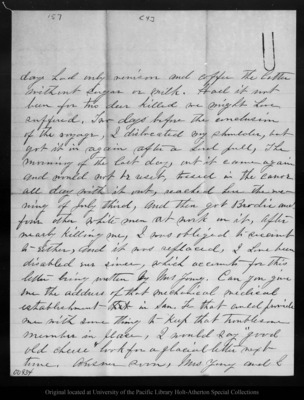 157
days had only venison and coffee the latter
without sugar or milk. Had it not
been for two deer killed we might have
suffered. Two days before the conclusion
of the voyage, I dislocated my shoulder, but
got it in again after a hard pull, The
morning of the last day, out it came again
and would not be set, tossed in the canoe
all day with it out, reached here the eve-
ning of July third, and then got Brodie and
four other white men at work on it, After
nearly killing me, I was obliged to recount
to Ether, and it was replaced, I have been
disabled ever since, which accounts for this
letter being written by Mrs Young. Can you give
me the address of that mechanical medical
establishment in San. Fr that could provide
me with some thing to keep that troublesome
member in place, I would say "good
old cheese" look for a glacial letter next
time. Answer soon, Mrs Young and I
00934
Original located at University of the Pacific Library Holt-Atherton Special Collections